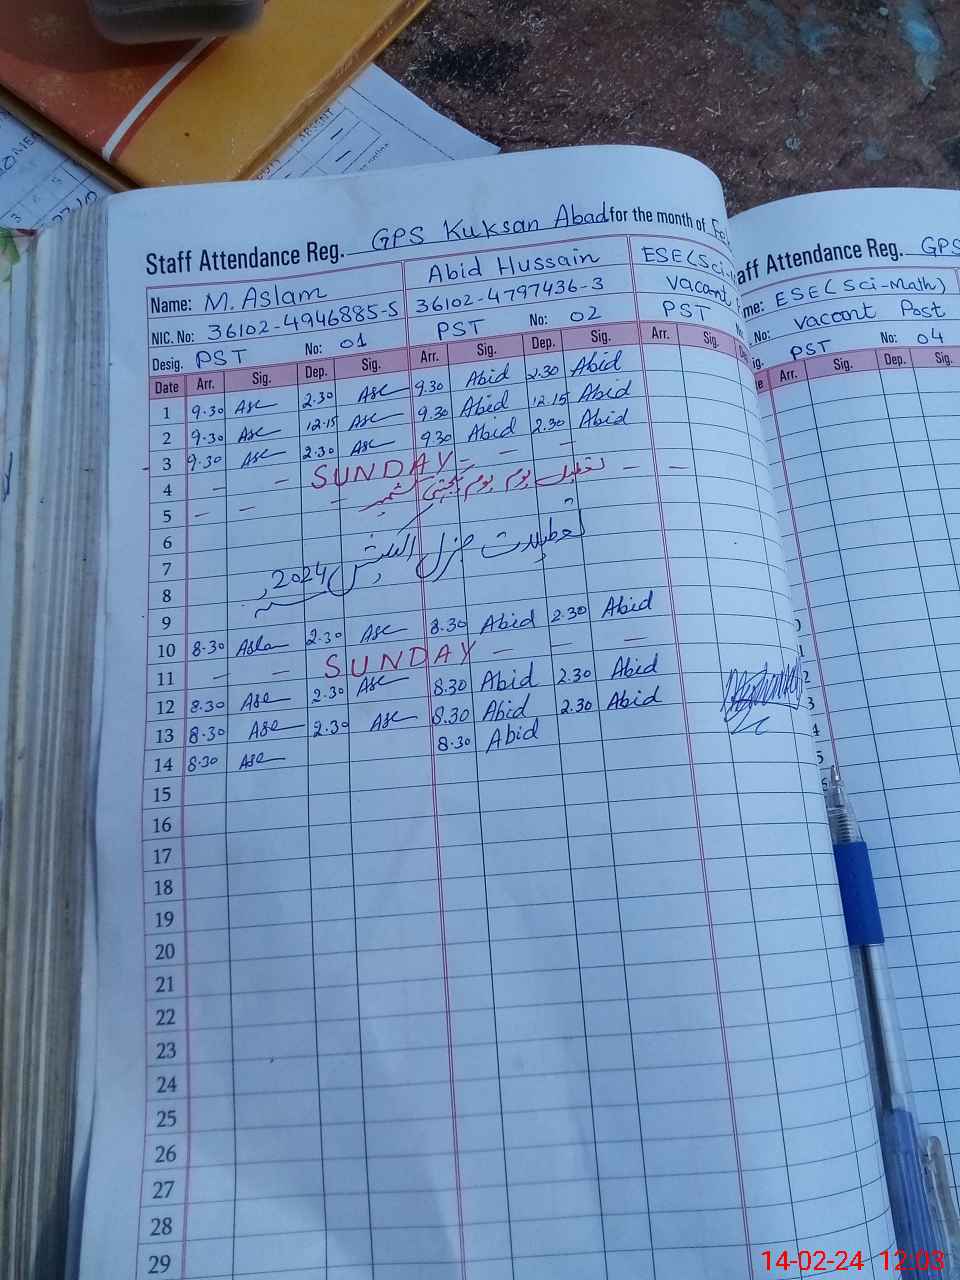 Staff Attendance Reg. GPS Kuksan Abad for the month of
Name: M. Aslam Abid Hussain ESE (Sci-
NIC. No: 36102-4946885-5 36102-4797436-3 vacant
Desig. PST No: 01 PST No: 02 PST
Date Arr. Sig. Dep. Sig. Arr. Sig. Dep. Sig. Arr. Sig.
1 9.30 Asc 2.30 Asc 9.30 Abid 2.30 Abid
2 9.30 Asc 12.15 Asc 9.30 Abid 12.15 Abid
3 9.30 Asc 2.30 Asc 9.30 Abid 2.30 Abid
4 - - SUNDAY - - -
5 - - - تعطیل یوم یکجہتی کشمیر - -
6
7 تعطیلات جنرل الیکشن 2024
8
9
10 8.30 Aslam 2.30 Asc 8.30 Abid 2.30 Abid
11 - - SUNDAY - - -
12 8.30 Asc 2.30 Asc 8.30 Abid 2.30 Abid
13 8.30 Asc 2.30 Asc 8.30 Abid 2.30 Abid
14 8.30 Asc 8.30 Abid
15
16
17
18
19
20
21
22
23
24
25
26
27
28
29
aff Attendance Reg. GPS
me: ESE (Sci-Math)
No: vacant Post
ig. PST No: 04
Arr. Sig. Dep. Sig.
14-02-24 12:03